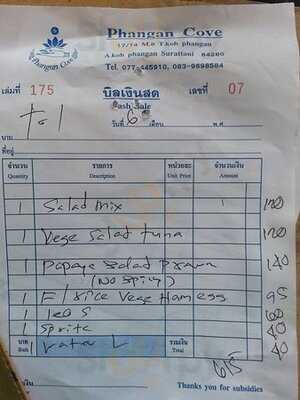 Phangan Cove
17/14 M.8 T.koh phangan
A.koh phangan Surattani 84280
Phangan Cove
Tel. 077-445910, 083-9698584
เล่มที่ 175 บิลเงินสด เลขที่ 07
Cash Sale
วันที่ 6 เดือน พ.ศ.
นาม
ที่อยู่
จำนวน รายการ หน่วยละ จำนวนเงิน
Quantity Description Unit Price Amount
1 Salad mix 120
1 Vege Salad tuna 120
1 Papaya Salad Prawn 140
(No Spicy)
1 F/rice Vege 95
1 60
1 Sprite 40
บาท Baht 1 Water L รวมเงิน Total 40
615
Thanks you for subsidies